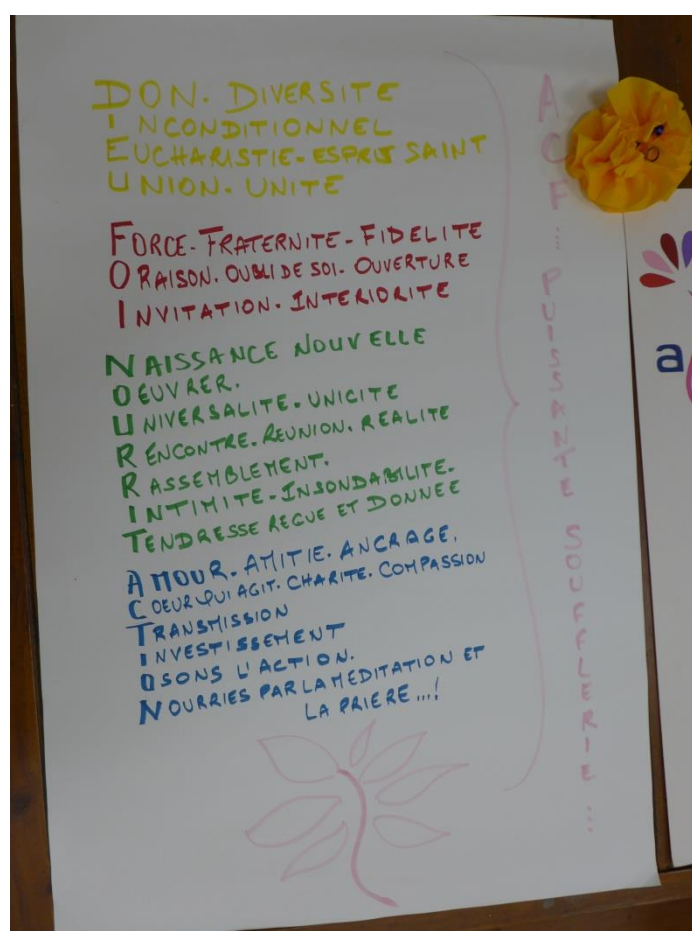 DON. DIVERSITE
INCONDITIONNEL
EUCHARISTIE-ESPRIT SAINT
UNION. UNITE
FORCE-FRATERNITE-FIDELITE
ORAISON. OUBLI DE SOI. OUVERTURE
INVITATION. INTERIORITE
NAISSANCE NOUVELLE
OEUVRER.
UNIVERSALITE. UNICITE
RENCONTRE. REUNION. REALITE
RASSEMBLEMENT.
INTIMITE-INSONDABILITE.
TENDRESSE RECUE ET DONNEE
AMOUR. AMITIE. ANCRAGE.
COEUR QUI AGIT. CHARITE. COMPASSION
TRANSMISSION
INVESTISSEMENT
OSONS L'ACTION.
NOURRIES PAR LA MEDITATION ET
LA PRIERE...!
ACF : PUISSANTE SOUFFLERIE...
a